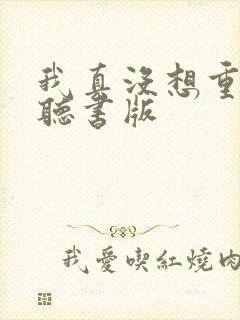 我真没想重
聽書版
我愛喫紅燒肉